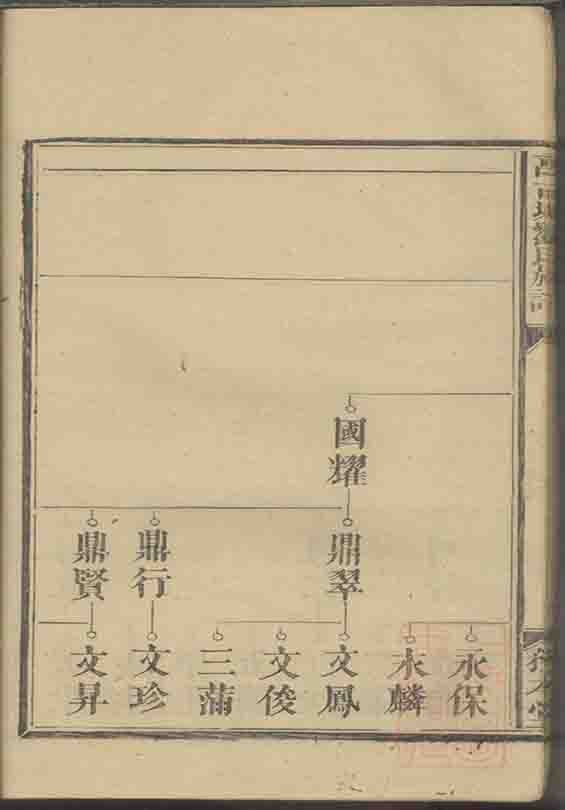 國耀
鼎翠
鼎行
鼎賢
永保
永麟
文鳳
文俊
三蒲
文珍
文昇